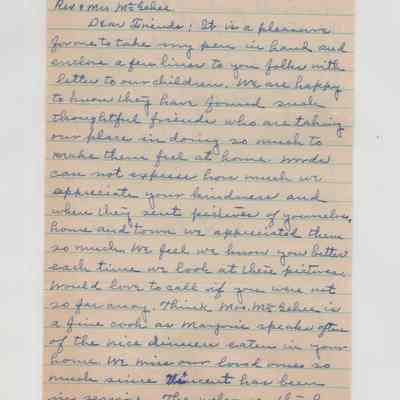 Rev & Mrs. McGehee
Dear Friends: It is a pleasure
for me to take my pen in hand and
enclose a few lines to you folks with
letter to our children. We are happy
to know they have found such
thoughtful friends who are taking
our place in doing so much to
make them feel at home. Words
can not express how much we
appreciate your kindness and
when they sent pictures of yourselves,
home and town we appreciated them
so much. We feel we know you better
each time we look at these pictures.
Would love to call if you were not
so far away. Think Mrs. McGehee is
a fine cook as Marjorie speaks often
of the nice dinners eaten in your
home. We miss our loved ones so
much since Vincent has been
in service. The